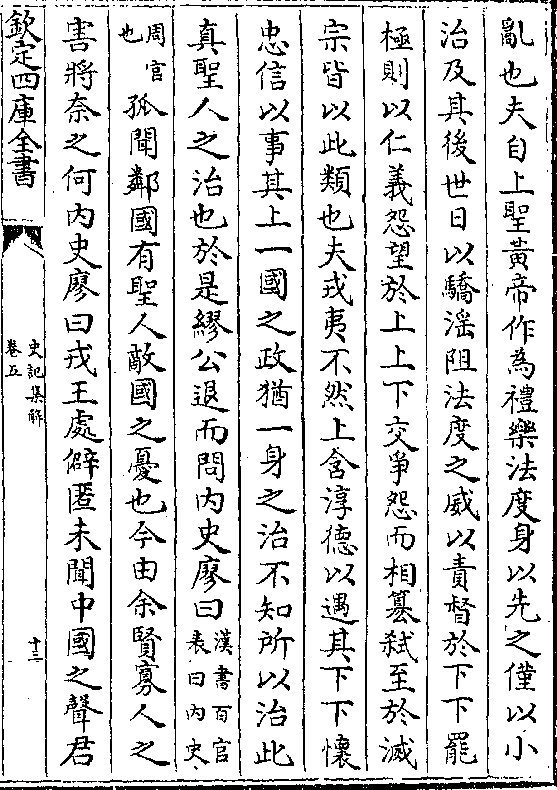 亂也夫自上聖黃帝作為禮樂法度身以先之僅以小
治及其後世日以驕淫阻法度之威以責督於下下罷
極則以仁義怨望於上上下交爭怨而相簒弑至於滅
宗皆以此類也夫戎夷不然上含淳德以遇其下下懷
忠信以事其上一國之政猶一身之治不知所以治此
真聖人之治也於是繆公退而問內史廖曰漢書百官
表曰內史
周官
也孤聞鄰國有聖人敵國之憂也今由余賢寡人之
害將奈之何內史廖曰戎王處僻匿未聞中國之聲君
欽定四庫全書
史記集解
卷五
十三